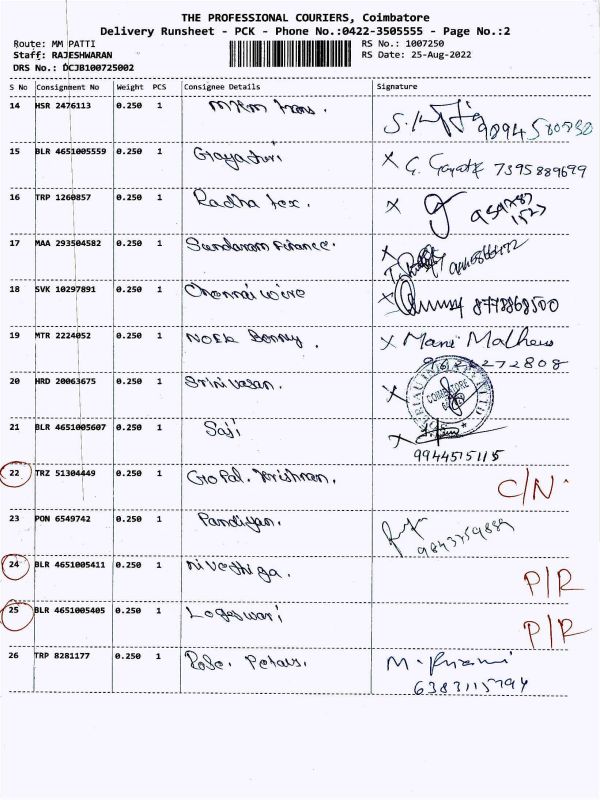 THE PROFESSIONAL COURIERS, Coimbatore
Delivery Runsheet - PCK - Phone No.:0422-3505555 - Page No.:2
Route: MM PATTI RS No.: 1007250
Staff: RAJESHWARAN RS Date: 25-Aug-2022
DRS No.: DCJB100725002
S No Consignment No Weight PCS Consignee Details Signature
14 HSR 2476113 0.250 1
15 BLR 4651005559 0.250 1 Gayathri G. Gayatri 7395889699
16 TRP 1260857 0.250 1 Radha tex.
17 MAA 293504582 0.250 1 Sundaram Finance.
18 SVK 10297891 0.250 1 Chennai wire 8778868500
19 MTR 2224052 0.250 1 Noel Bonny. Mani Mathew
272808
20 HRD 20063675 0.250 1 Srinivasan. COIMBATORE
21 BLR 4651005607 0.250 1 Saji
9944515115
22 TRZ 51304449 0.250 1 Gopal. Krishnan. C/N.
23 PON 6549742 0.250 1 Pandiyan. 9843759889
24 BLR 4651005411 0.250 1 Nivethiga. P/R
25 BLR 4651005405 0.250 1 Logeswari P/R
26 TRP 8281177 0.250 1 Rose. Petals.
6383115794